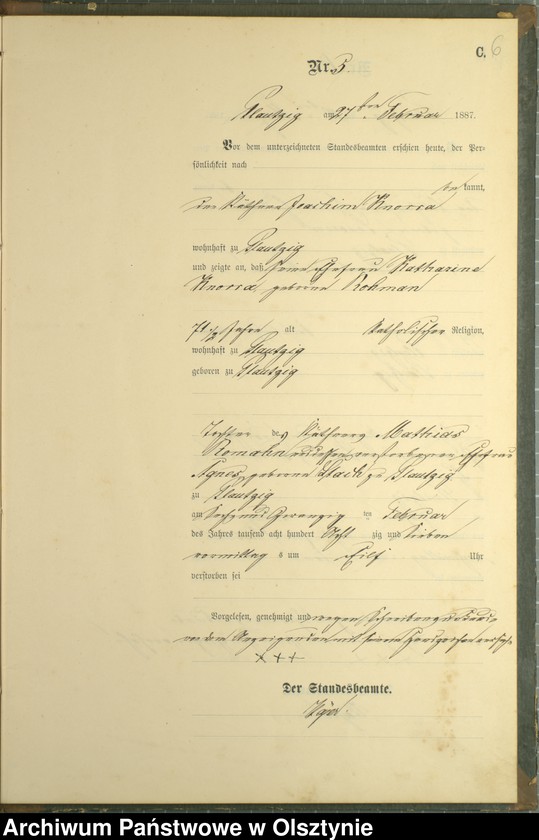 C. 6
Nr. 5
Plautzig am 27ten Februar 1887.
Vor dem unterzeichneten Standesbeamten erschien heute, der Per-
sönlichkeit nach
bekannt,
der Käthner Joachim Knorra
wohnhaft zu Plautzig
und zeigte an, daß seine Ehefrau Katharina
Knorra geborene Rohman
71 1/2 Jahre alt katholischer Religion,
wohnhaft zu Plautzig
geboren zu Plautzig
Tochter des Käthners Mathias
Romahn und dessen verstorbenen Ehefrau
Agnes, geborene Stach zu Plautzig
zu Plautzig
am Sechsundzwanzig ten Februar
des Jahres tausend acht hundert Acht zig und Sieben
vormittag s um Eilf Uhr
verstorben sei
Vorgelesen, genehmigt und wegen Schreibensunkunde
von dem Anzeigenden mit seinem Handzeichen versehen
+++
Der Standesbeamte.
Archiwum Państwowe w Olsztynie